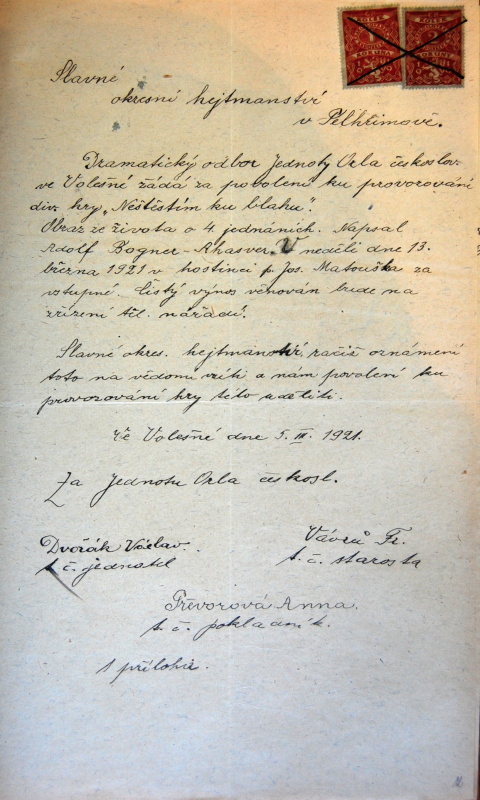 KOLEK KOLEK
1 2
KORUNA KORUNY
Slavné
okresní hejtmanství
v Pelhřimově.
Dramatický odbor Jednoty Orla českoslov.
ve Volešné žádá za povolení ku provozování
div. hry „Neštěstím ku blahu".
Obraz ze života o 4. jednáních. Napsal
Adolf Bogner-Ahasver. V neděli dne 13.
března 1921 v hostinci p. Jos. Matouška za
vstupné. Čistý výnos věnován bude na
zřízení těl. nářadí.
Slavné okres. hejtmanství račiž oznámení
toto na vědomí vzíti a nám povolení ku
provozování hry této uděliti.
Ve Volešné dne 5. III. 1921.
Za Jednotu Orla českosl.
Dvořák Václav. Vávrů Fr.
t. č. jednatel t. č. starosta
Trěvorová Anna.
t. č. pokladník.
1 příloha.